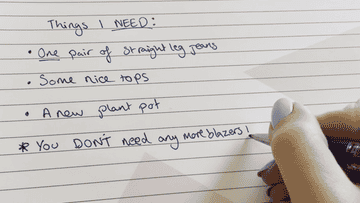 Things I NEED:
• One pair of straight leg jeans
• Some nice tops
• A new plant pot
* You DON'T need any more blazers!